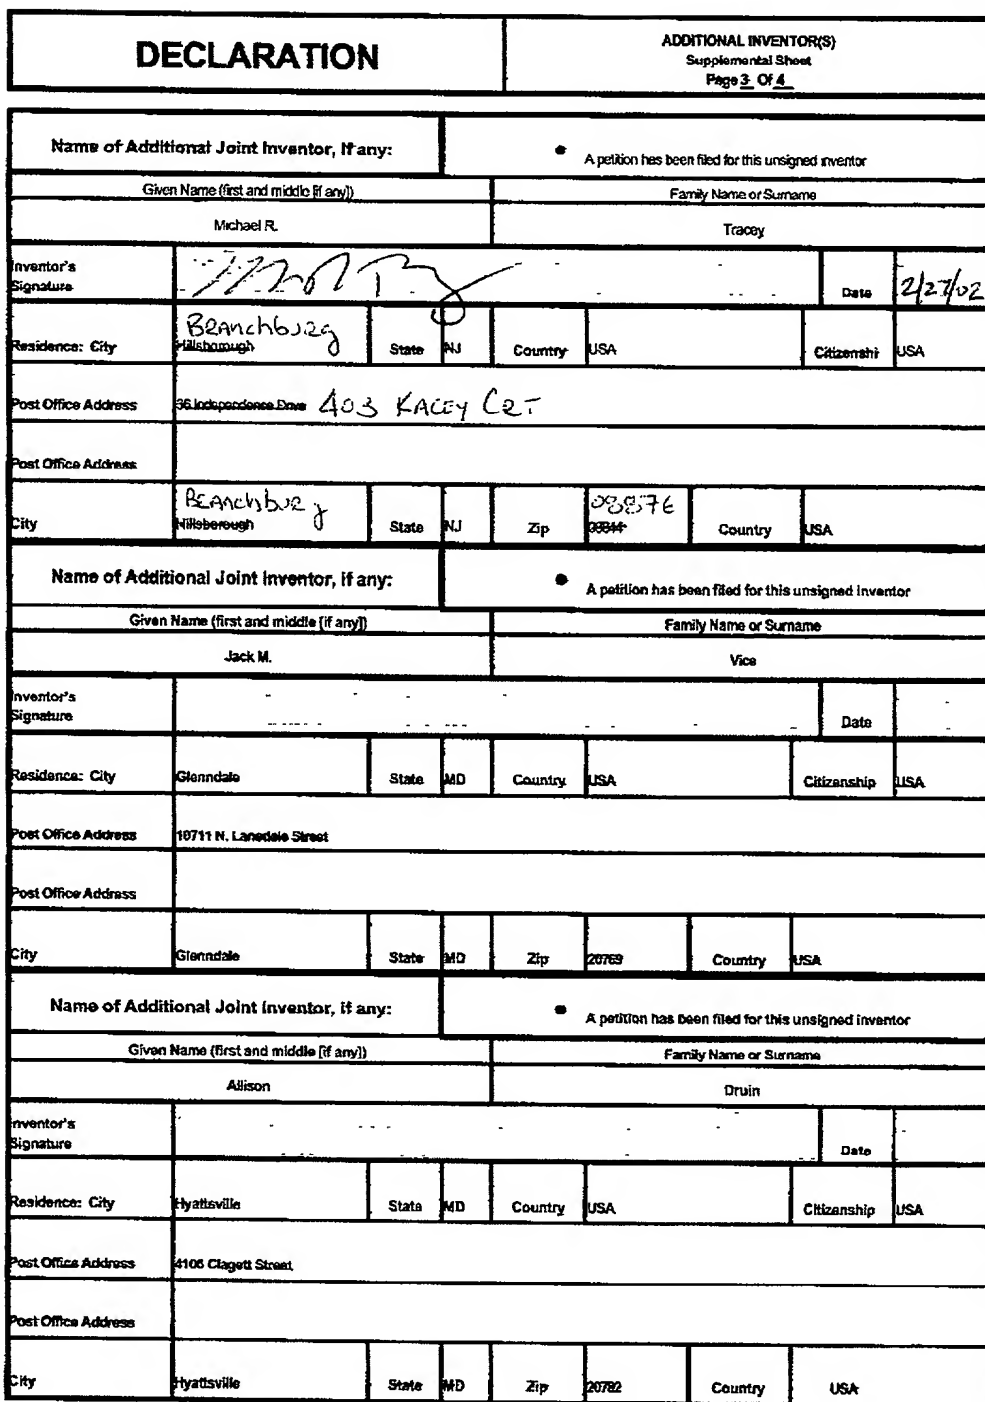 DECLARATION
ADDITIONAL INVENTOR(S)
Supplemental Sheet
Page 3 Of 4
Name of Additional Joint Inventor, if any:
• A petition has been filed for this unsigned inventor
Given Name (first and middle [if any])
Family Name or Surname
Michael R.
Tracey
Inventor's
Signature
Date
2/27/02
Branchburg
Residence: City
Hillsborough
State
NJ
Country
USA
Citizenshi
USA
Post Office Address
36 Independence Drive 403 KACEY CRT
Post Office Address
Branchburg
08876
City
Hillsborough
State
NJ
Zip
08844
Country
USA
Name of Additional Joint Inventor, if any:
• A petition has been filed for this unsigned inventor
Given Name (first and middle [if any])
Family Name or Surname
Jack M.
Vice
Inventor's
Signature
Date
Residence: City
Glenndale
State
MD
Country
USA
Citizenship
USA
Post Office Address
10711 N. Lansdale Street
Post Office Address
City
Glenndale
State
MD
Zip
20769
Country
USA
Name of Additional Joint Inventor, if any:
• A petition has been filed for this unsigned inventor
Given Name (first and middle [if any])
Family Name or Surname
Allison
Druin
Inventor's
Signature
Date
Residence: City
Hyattsville
State
MD
Country
USA
Citizenship
USA
Post Office Address
4106 Clagett Street
Post Office Address
City
Hyattsville
State
MD
Zip
20782
Country
USA